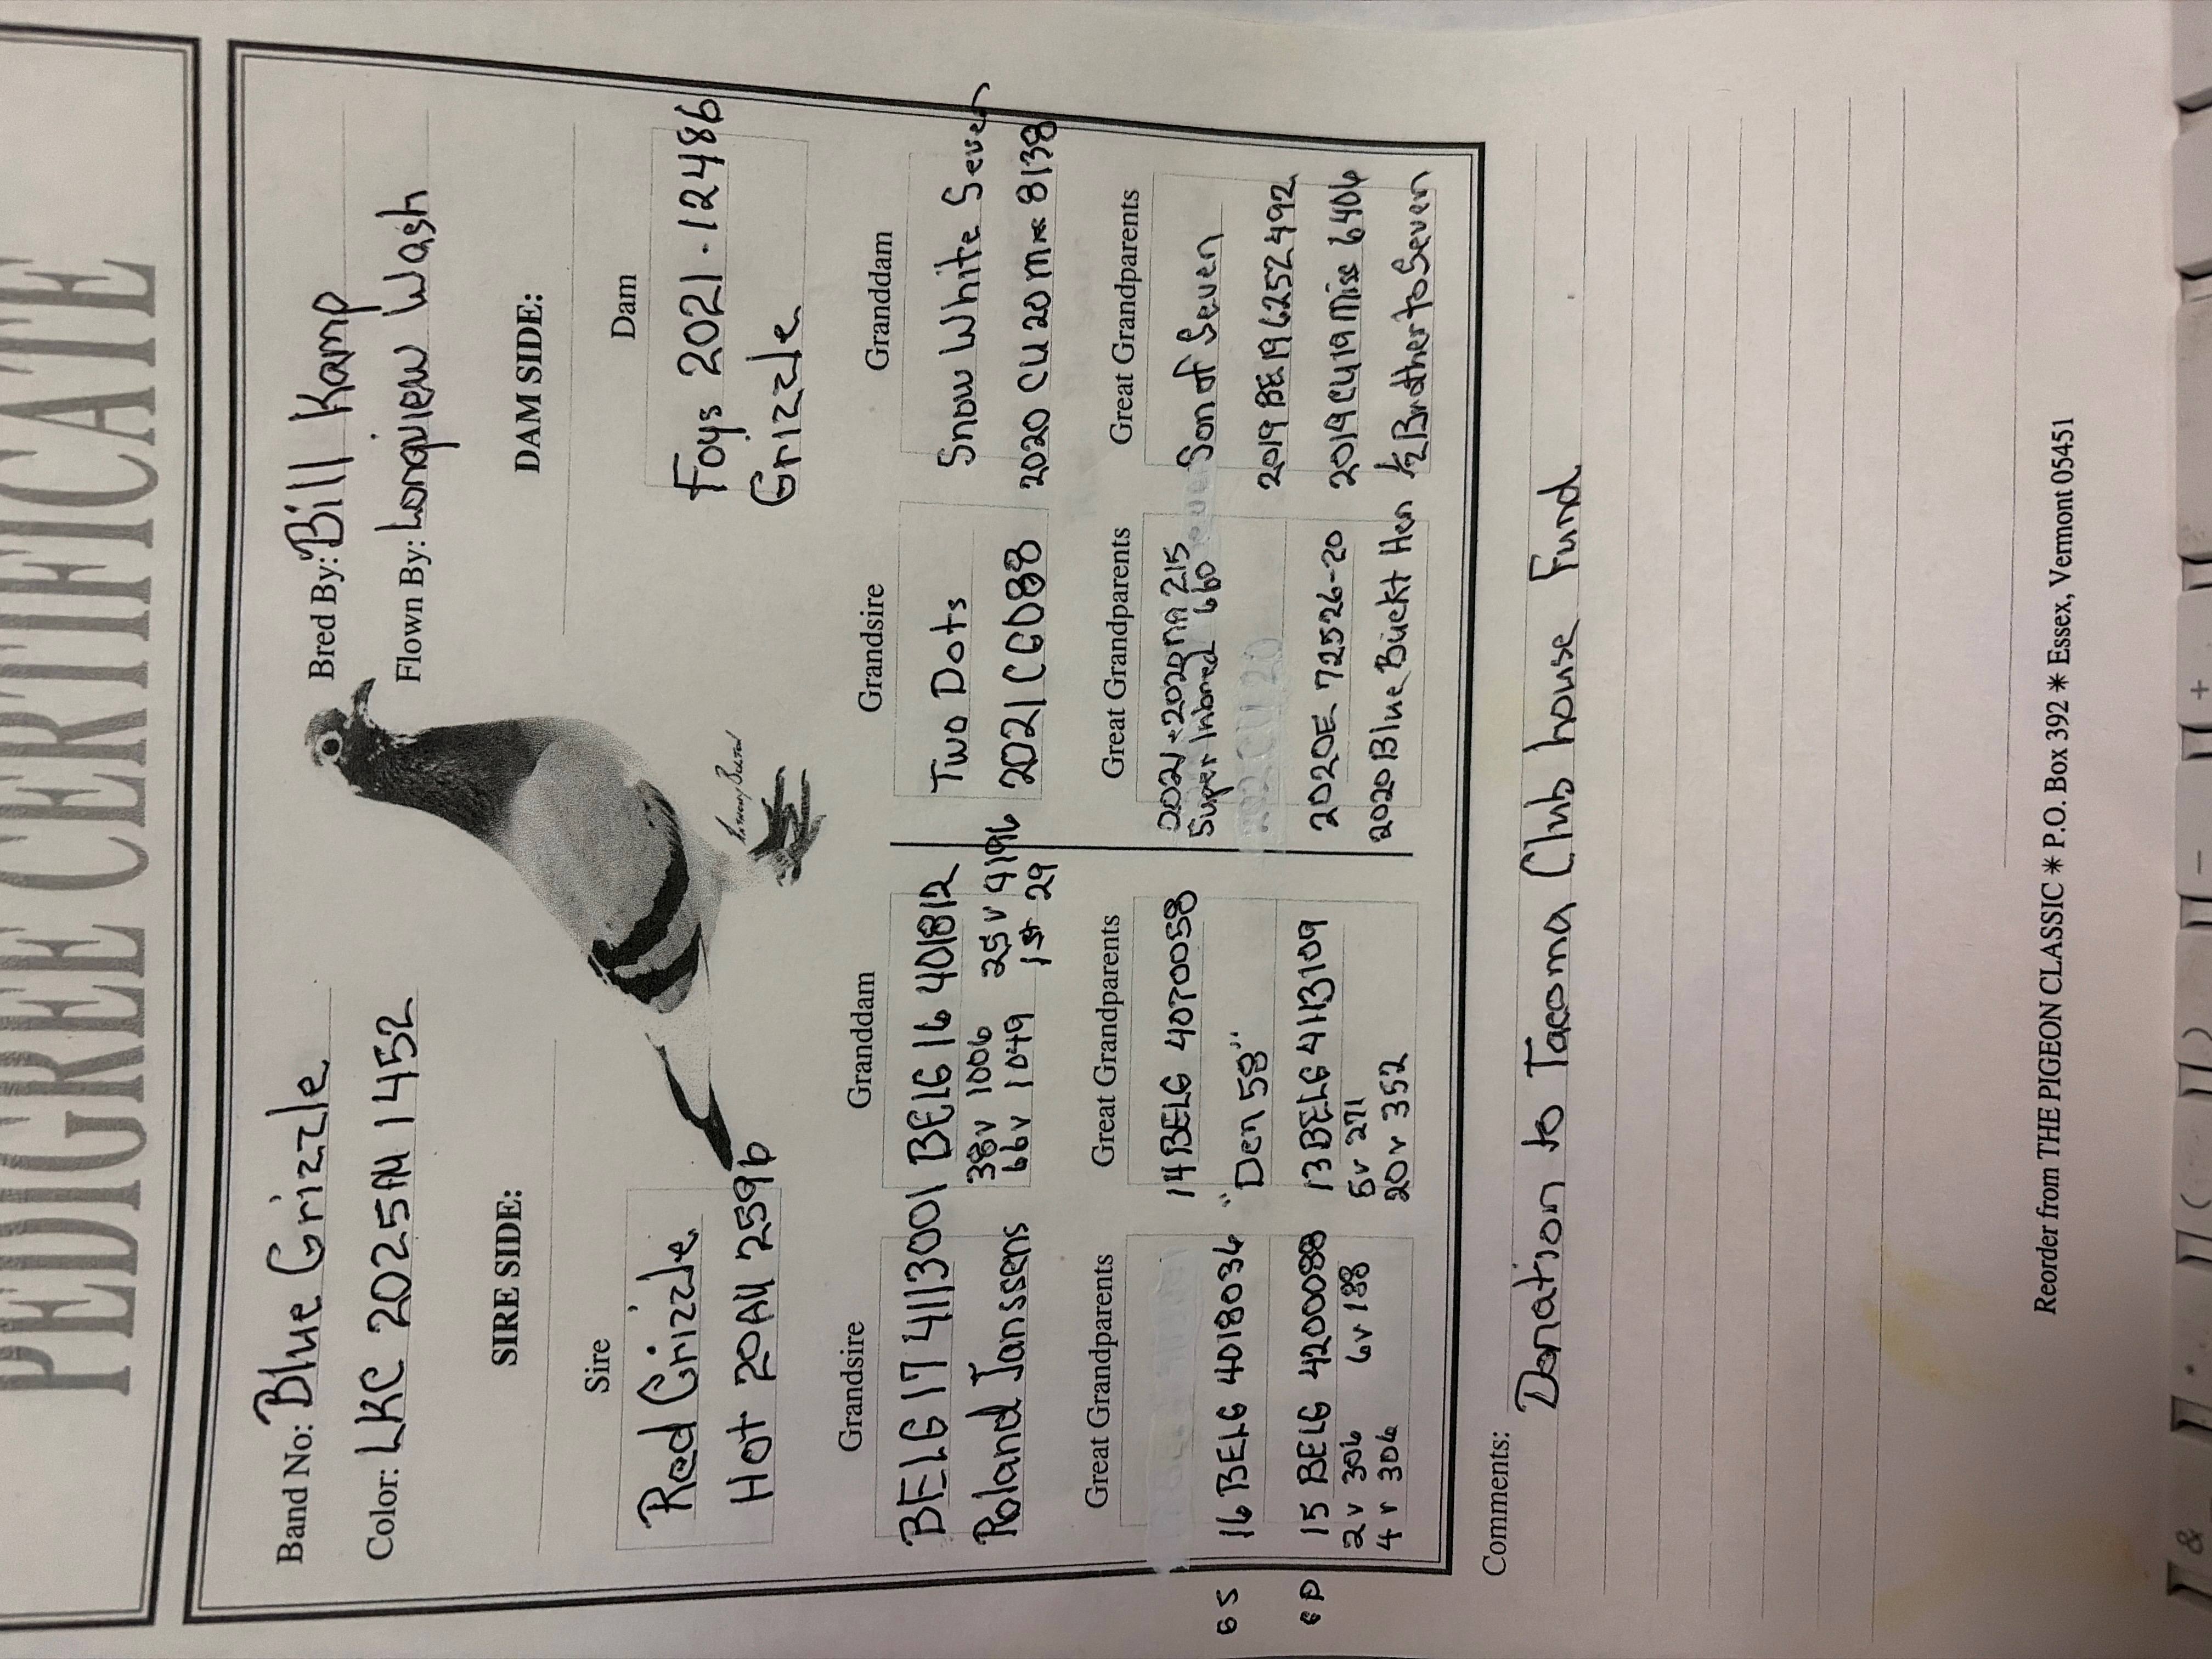 PEDIGREE CERTIFICATE
Band No: Blue Grizzle
Bred By: Bill Kamp
Color: LKC 2025 AA 1452
Flown By: Longview Wash
SIRE SIDE:
DAM SIDE:
Sire
Dam
Red Grizzle
Foys 2021 · 12486
Hot 20AU 2596
Grizzle
Grandsire
Granddam
Grandsire
Granddam
BELG 17 4113001
BELG 16 401812
Two Dots
Snow White Seven
Roland Janssens
38v 1006 25v 4196
2021 CGD88
2020 CU 20 Miss 8138
66v 1049 1st 29
Great Grandparents
Great Grandparents
Great Grandparents
Great Grandparents
14 BELG 4070058
215
Son of Seven
Super Inbred 660
GS 16 BELG 4018036
"Den 58"
2019 BE 19 6252492
GD 15 BELG 4200088
13 BELG 4113109
2020E 72526-20
2019 CU 19 Miss 6406
2 v 306 6v 188
5v 271
2020 Blue Buckt Hen
1/2 Brother to Seven
4 v 306
20v 352
Comments: Donation to Tacoma Club house Fund
Reorder from THE PIGEON CLASSIC * P.O. Box 392 * Essex, Vermont 05451